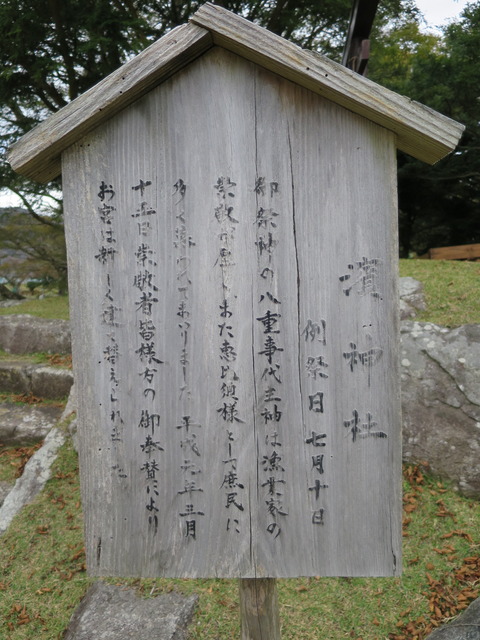 濱神社
例祭日 七月十日
御祭神の八重事代主神は漁業家の
崇敬が厚くまた恵比須様として庶民に
多く添ってまいりました 平成元年五月
十五日崇敬者皆様方の御奉賛により
お宮は新しく建て替えられました